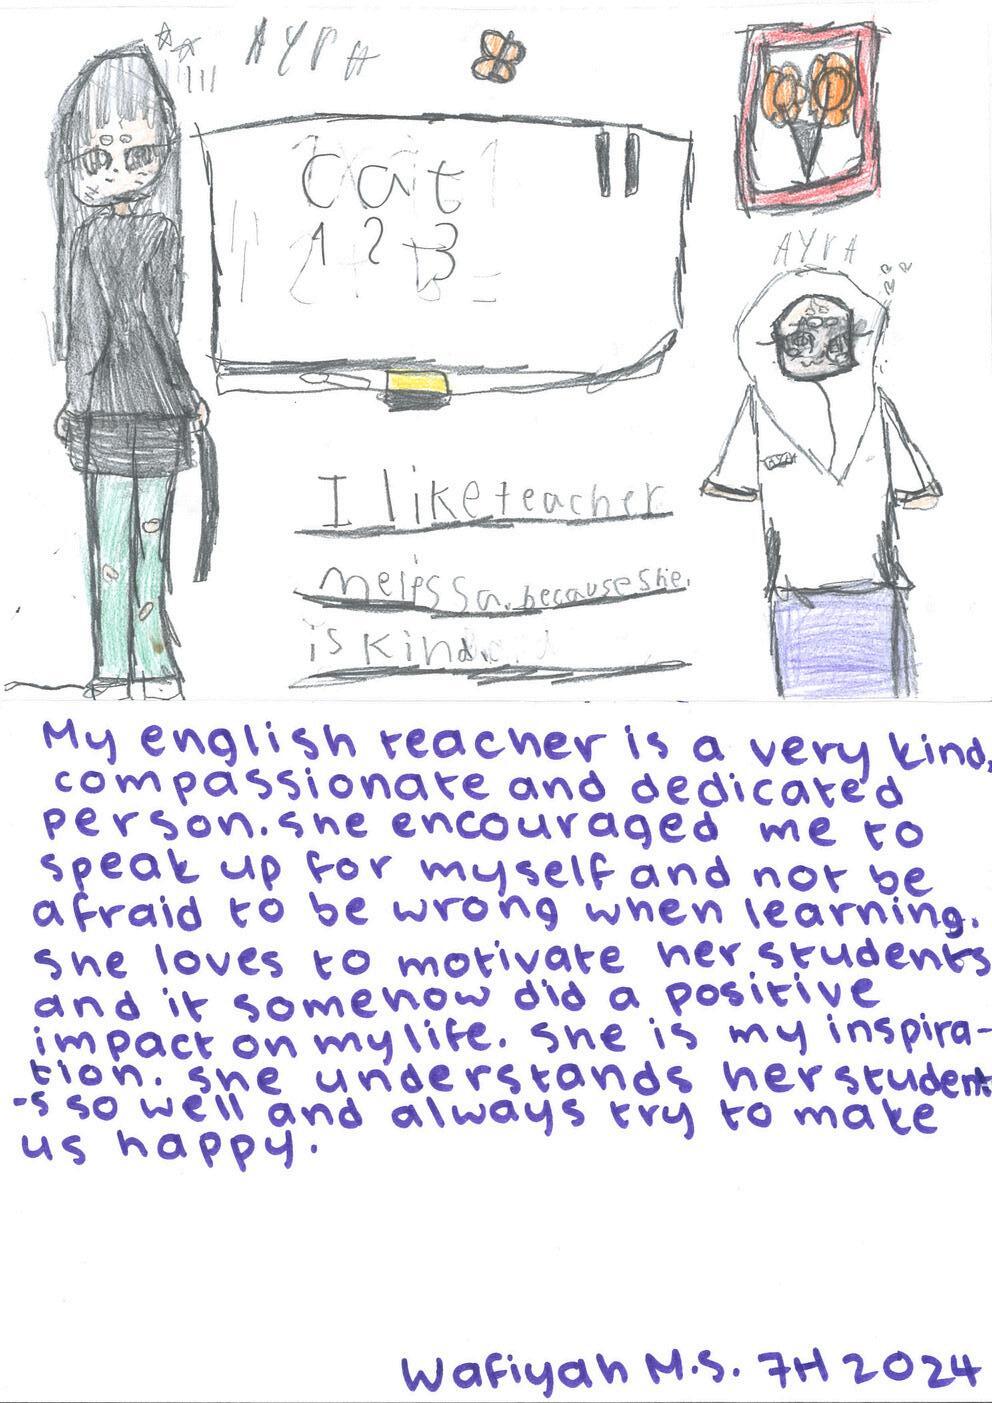 AYRA
cat
1 2 3
AYRA
AYRA
I like teacher
melissa. because she.
is kind.
My english teacher is a very kind,
compassionate and dedicated
person. She encouraged me to
speak up for myself and not be
afraid to be wrong when learning.
She loves to motivate her students
and it somehow did a positive
impact on my life. She is my inspira-
tion. She understands her student
-s so well and always try to make
us happy.
Wafiyah M.S. 7H 2024